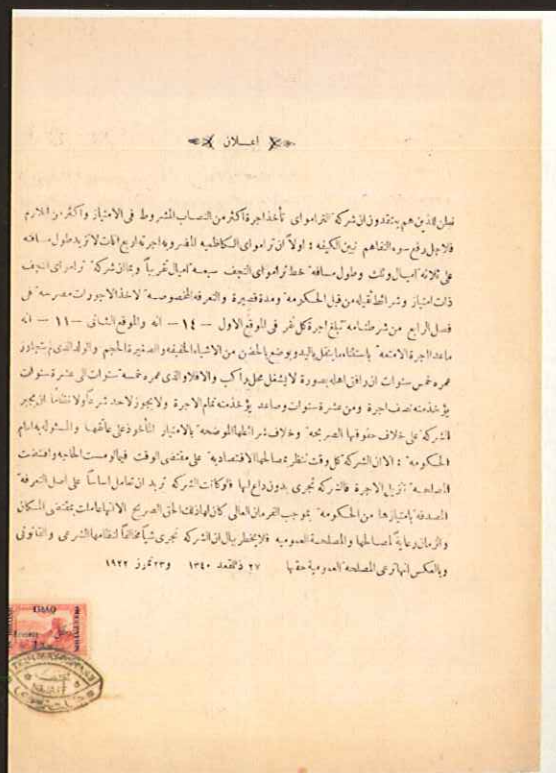 اعلان
نعلن للذين هم ينتقدون ان شركة الترامواى تأخذ اجرة اكثر من النصاب المشروط فى الامتياز واكثر من اللازم
فلاجل رفع سوء التفاهم نبين الكيفية : اولاً ان ترامواى الكاظميه المضروبه اجرته اربع انات لا تزيد طول مسافه
على ثلاثة اميال وثلث وطول مسافة خط ترامواى النجف سبعة اميال تقريباً وبما ان شركة ترامواى النجف
ذات امتياز وشرائط مقبله من قبل الحكومة ومدة قصيرة والتعرفه المخصوصة لاخذ الاجورات مصرحه فى
فصل الرابع من شرطنامه تبلغ اجرة كل نفر فى الموقع الاول — ١٤ — انه والموقع الثانى — ١١ — انه
ماعدا اجرة الامتعة باستثناء ما ينقل باليد ويوضع بالحضن من الاشياء الخفيفه والصغيرة الحجم والولد الذى لم يتجاوز
عمره خمس سنوات ان رافق اهله بصورة لا يشغل محل راكب والا فلا والذى عمره خمسة سنوات الى عشرة سنوات
يؤخذ منه نصف اجرة ومن عشرة سنوات وصاعد يؤخذ منه تمام الاجرة ولا يجوز لاحد شرعاً ولا نظاماً ان يجبر
الشركة على خلاف حقوقها الصريحة وخلاف شرائطها الموضحه بالامتياز المأخوذ على عاتقها والمسئوله به امام
الحكومة : الا ان الشركة كل وقت تنظر مصالحها الاقتصادية على مقتضى الوقت فيما لو مست الحاجه واقتضت
المصلحة تنزيل الاجرة فالشركه تجرى بدون داع لها فلو كانت الشركه تريد ان تعامل اساساً على اصل التعرفة
المصدقة بامتيازها من الحكومة بموجب الفرمان العالى كان لها بذلك الحق الصريح الا انها عاملت بمقتضى المكان
والزمان رعاية لمصالحها والمصلحة العموميه فلا يخطر ببال ان الشركه تجرى شيأ مخالفاً لنظامها الشرعى والقانونى
وبالعكس انها ترعى المصلحة العمومية حقها ٢٧ ذى القعد ١٣٤٠ و ٢٣ تموز ١٩٢٢
NEJEFF